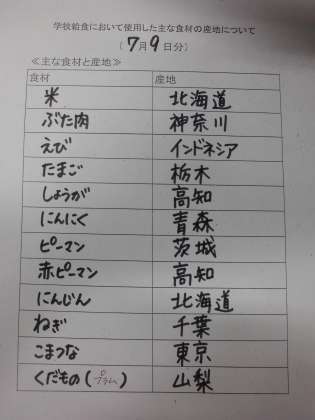 学校給食において使用した主な食材の産地について
(7月9日分)
≪主な食材と産地≫
食材 産地
米 北海道
ぶた肉 神奈川
えび インドネシア
たまご 栃木
しょうが 高知
にんにく 青森
ピーマン 茨城
赤ピーマン 高知
にんじん 北海道
ねぎ 千葉
こまつな 東京
くだもの(プラム) 山梨